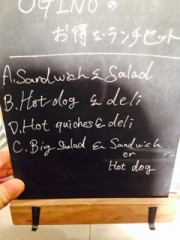 OGINOの
お得なランチセット
A. Sandwich & Salad
B. Hot dog & deli
D. Hot quiches & deli
C. Big Salad & Sandwich
or
Hot dog